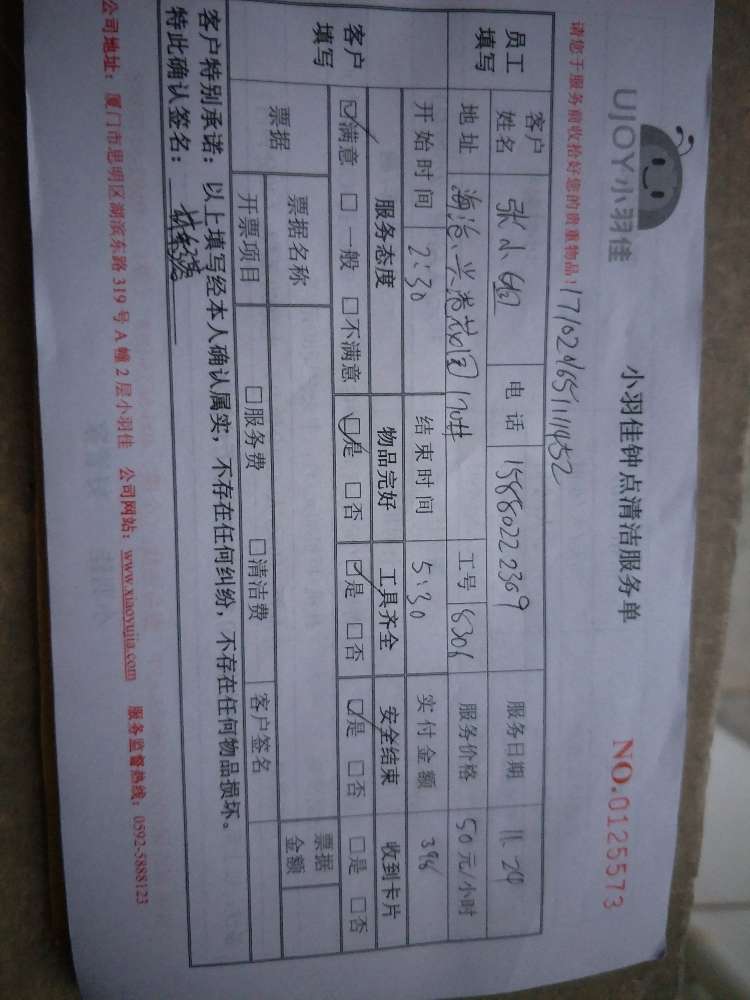 UJOY小羽佳
小羽佳钟点清洁服务单
NO.0125573
请您于服务前收拾好您的贵重物品!
17102465111452
员工填写
客户姓名 张小姐 电话 15880222309 服务日期 11.24
地址 海沧、兴港花园120# 工号 8306 服务价格 50元/小时
开始时间 2:30 结束时间 5:30 实付金额 396
客户填写
服务态度 物品完好 工具齐全 安全结束 收到卡片
☑满意 □一般 □不满意 ☑是 □否 ☑是 □否 ☑是 □否 □是 □否
票据 票据名称 票据金额
开票项目 □服务费 □清洁费 客户签名
客户特别承诺：以上填写经本人确认属实，不存在任何纠纷，不存在任何物品损坏。
特此确认签名：
公司地址：厦门市思明区湖滨东路319号A幢2层小羽佳 公司网站：www.xiaoyujia.com 服务监督热线：0592-5888123